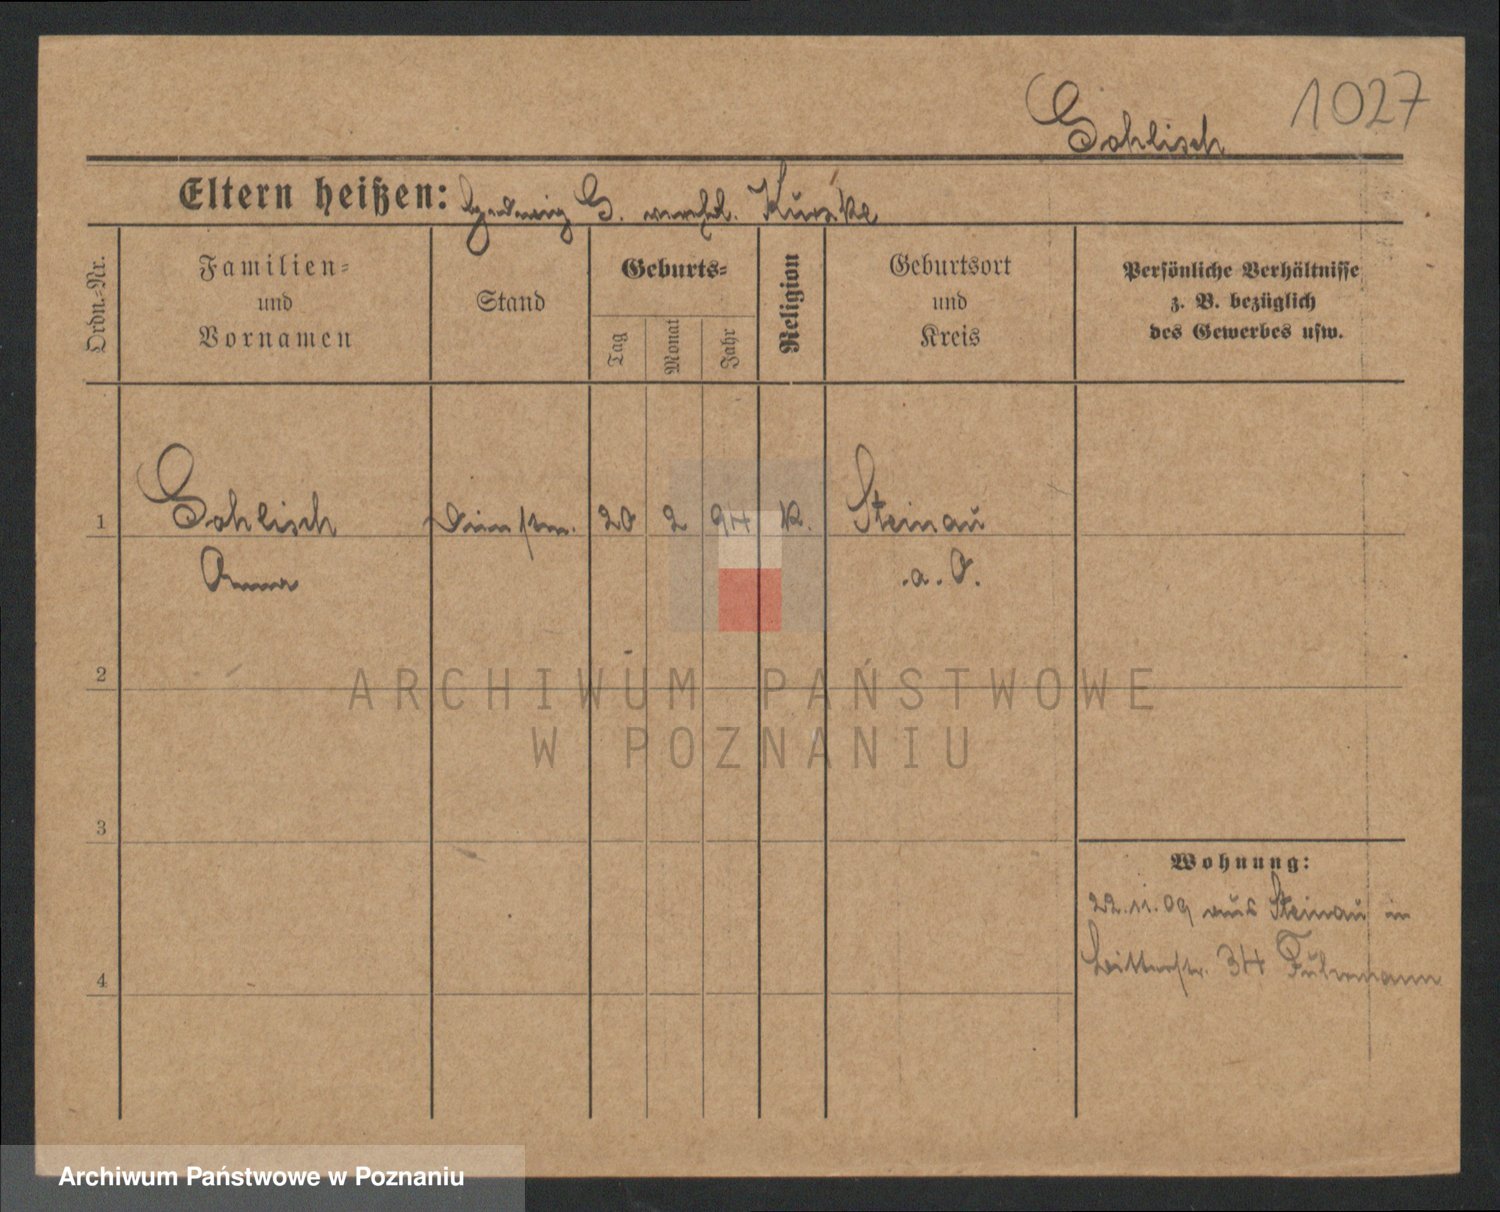 1027
Gohlisch
Eltern heißen: Hedwig G. verehel. Kurzke
Ordn.=Nr.
Familien=
und
Vornamen
Stand
Geburts=
Tag
Monat
Jahr
Religion
Geburtsort
und
Kreis
Persönliche Verhältnisse
z. B. bezüglich
des Gewerbes usw.
1 Gohlisch Dienstm. 20 2 94 K. Steinau
Anna a. O.
2
3
4
Wohnung:
22.11.09 aus Steinau in
34 Fuhrmann
ARCHIWUM PAŃSTWOWE
W POZNANIU
Archiwum Państwowe w Poznaniu